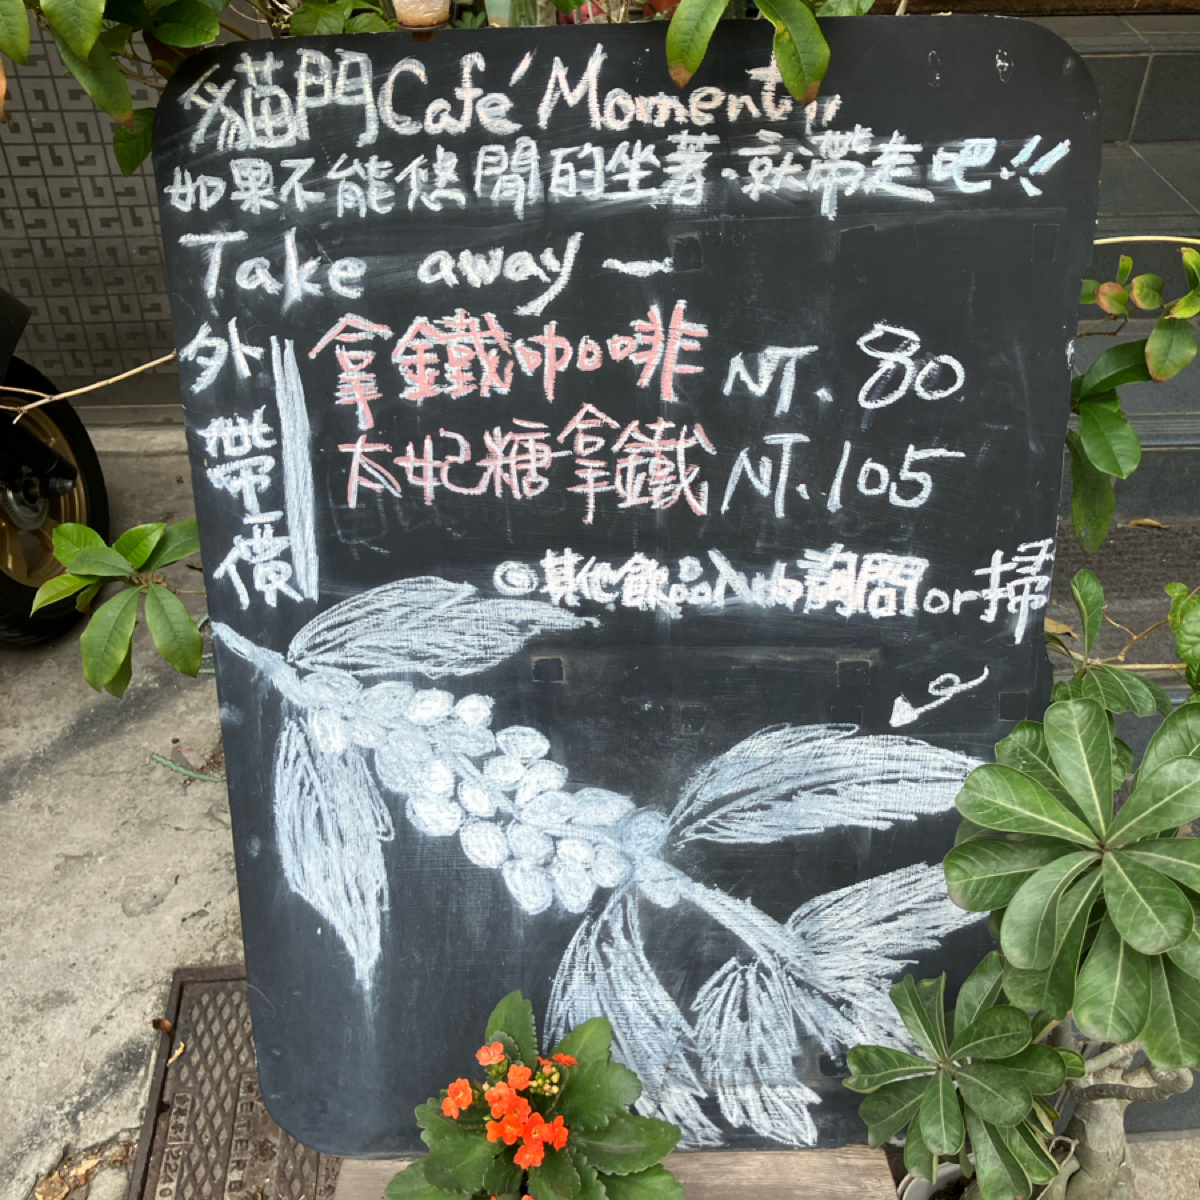 貓門Café Moment
如果不能悠閒的坐著．就帶走吧!!
Take away —
外帶價
拿鐵咖啡 NT. 80
太妃糖拿鐵 NT. 105
◎其他飲品入內詢問or掃